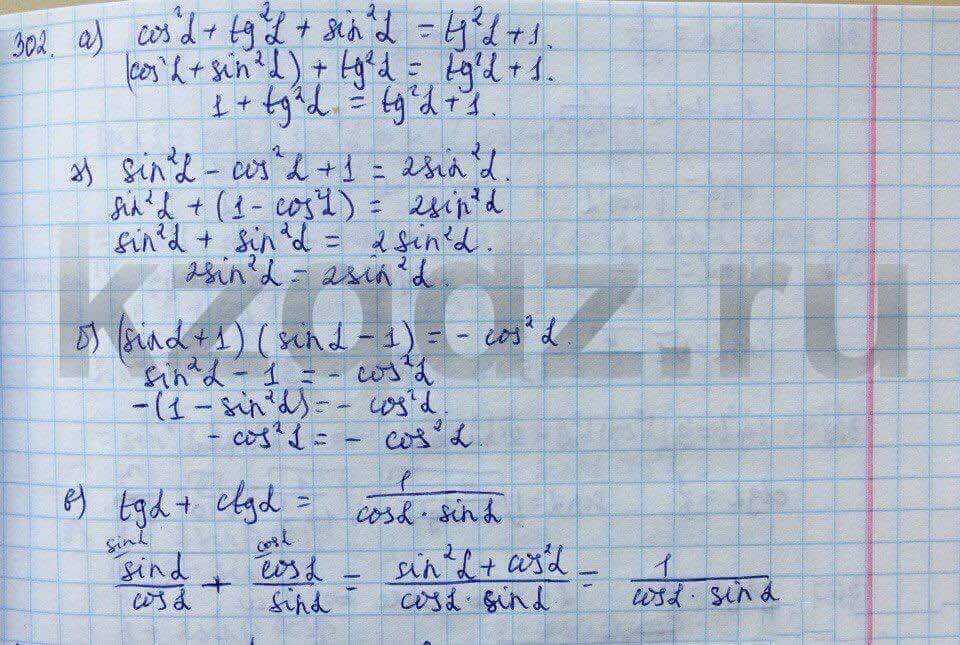 302. а) cos²α + tg²α + sin²α = tg²α + 1.
(cos²α + sin²α) + tg²α = tg²α + 1.
1 + tg²α = tg²α + 1.
г) sin²α - cos²α + 1 = 2sin²α.
sin²α + (1 - cos²α) = 2sin²α
sin²α + sin²α = 2sin²α.
2sin²α = 2sin²α.
kzgdz.ru
б) (sinα + 1)(sinα - 1) = - cos²α.
sin²α - 1 = - cos²α
-(1 - sin²α) = - cos²α.
- cos²α = - cos²α.
в) tgα + ctgα = 1 / (cosα · sinα)
sinα cosα
sinα/cosα + cosα/sinα = (sin²α + cos²α)/(cosα · sinα) = 1/(cosα · sinα)